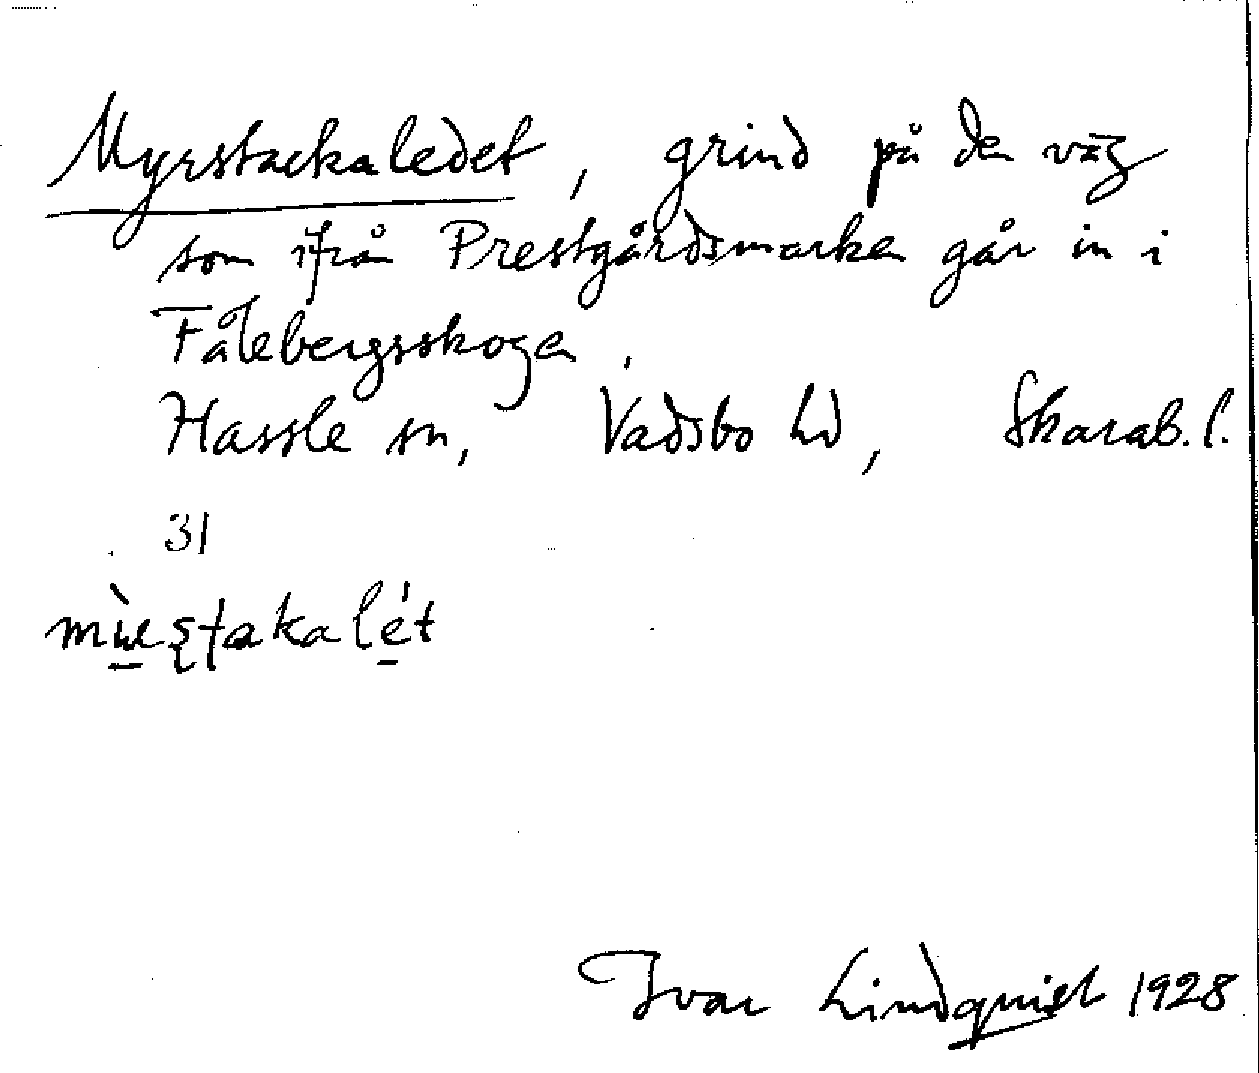 Myrstackaledet, grind på den väg
som ifrån Prestgårdsmarken går in i
Fålebergsskogen.
Hassle sn, Vadsbo hd, Skarab. l.
31
Ivar Lindquist 1928